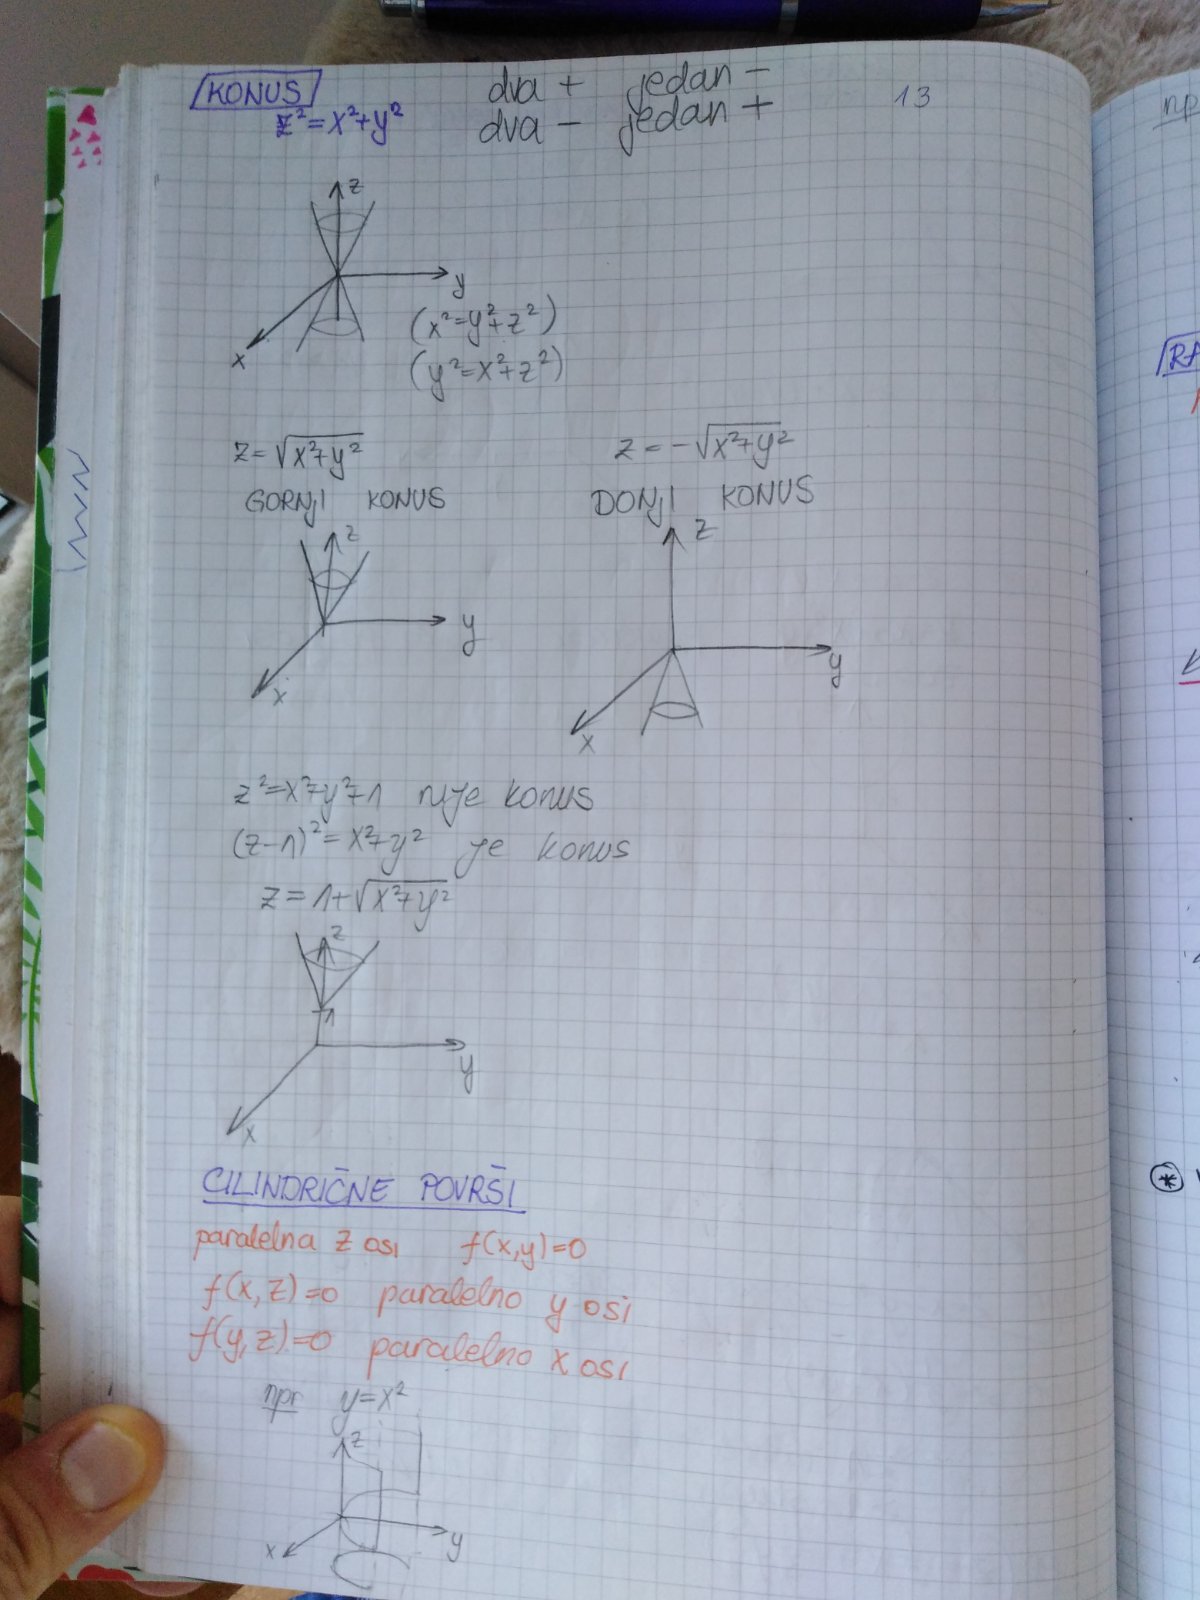 KONUS
dva + jedan -
13
z²=x²+y²
dva - jedan +
z
y
x
(x²=y²+z²)
(y²=x²+z²)
z=√x²+y²
z=-√x²+y²
GORNJI KONUS
DONJI KONUS
z
y
x
z
y
x
z²=x²+y²+1 nije konus
(z-1)²=x²+y² je konus
z=1+√x²+y²
z
1
y
x
CILINDRIČNE POVRŠI
paralelna z osi f(x,y)=0
f(x,z)=0 paralelno y osi
f(y,z)=0 paralelno x osi
npr y=x²
z
x
y
np